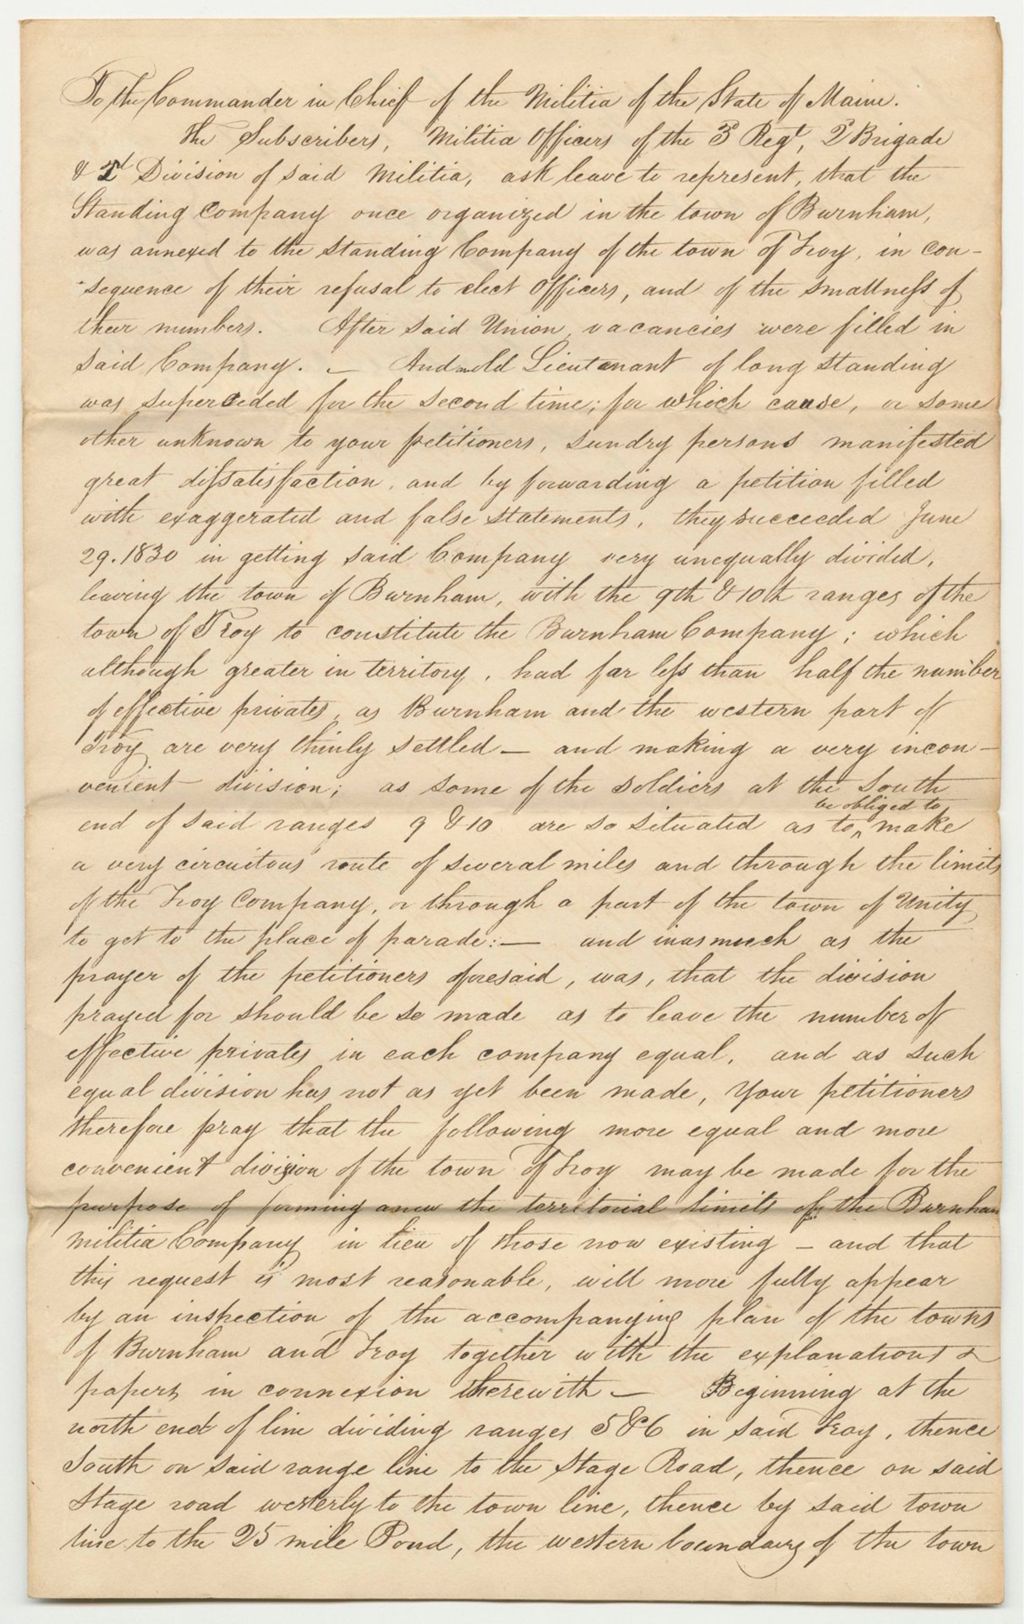 To the Commander in Chief of the Militia of the State of Maine.
The Subscribers, Militia Officers of the 3d Regt, 2d Brigade
& 2d Division of said Militia, ask leave to represent, that the
Standing Company once organized in the town of Burnham,
was annexed to the standing Company of the town of Troy, in con-
sequence of their refusal to elect Officers, and of the smallness of
their numbers. After said Union vacancies were filled in
said Company. — And old Lieutenant of long standing
was superceded for the second time; for which cause, or some
other unknown to your petitioners, sundry persons manifested
great dissatisfaction, and by forwarding a petition filled
with exaggerated and false statements, they succeeded June
29. 1830 in getting said Company very unequally divided,
leaving the town of Burnham, with the 9th & 10th ranges of the
town of Troy to constitute the Burnham Company; which
although greater in territory, had far less than half the number
of effective privates, as Burnham and the western part of
Troy are very thinly settled — and making a very incon-
venient division; as some of the soldiers at the South
end of said ranges 9 & 10 are so situated as to be obliged to make
a very circuitous route of several miles and through the limits
of the Troy Company, or through a part of the town of Unity
to get to the place of parade: — and inasmuch as the
prayer of the petitioners aforesaid, was, that the division
prayed for should be so made as to leave the number of
effective privates in each company equal, and as such
equal division has not as yet been made, Your petitioners
therefore pray that the following more equal and more
convenient division of the town of Troy may be made for the
purpose of forming anew the territorial limits of the Burnham
militia Company in lieu of those now existing — and that
this request is most reasonable, will more fully appear
by an inspection of the accompanying plan of the towns
of Burnham and Troy together with the explanations &
papers in connexion therewith — Beginning at the
north end of line dividing ranges 5 & 6 in said Troy, thence
South on said range line to the Stage Road, thence on said
Stage road westerly to the town line, thence by said town
line to the 25 mile Pond, the western boundary of the town